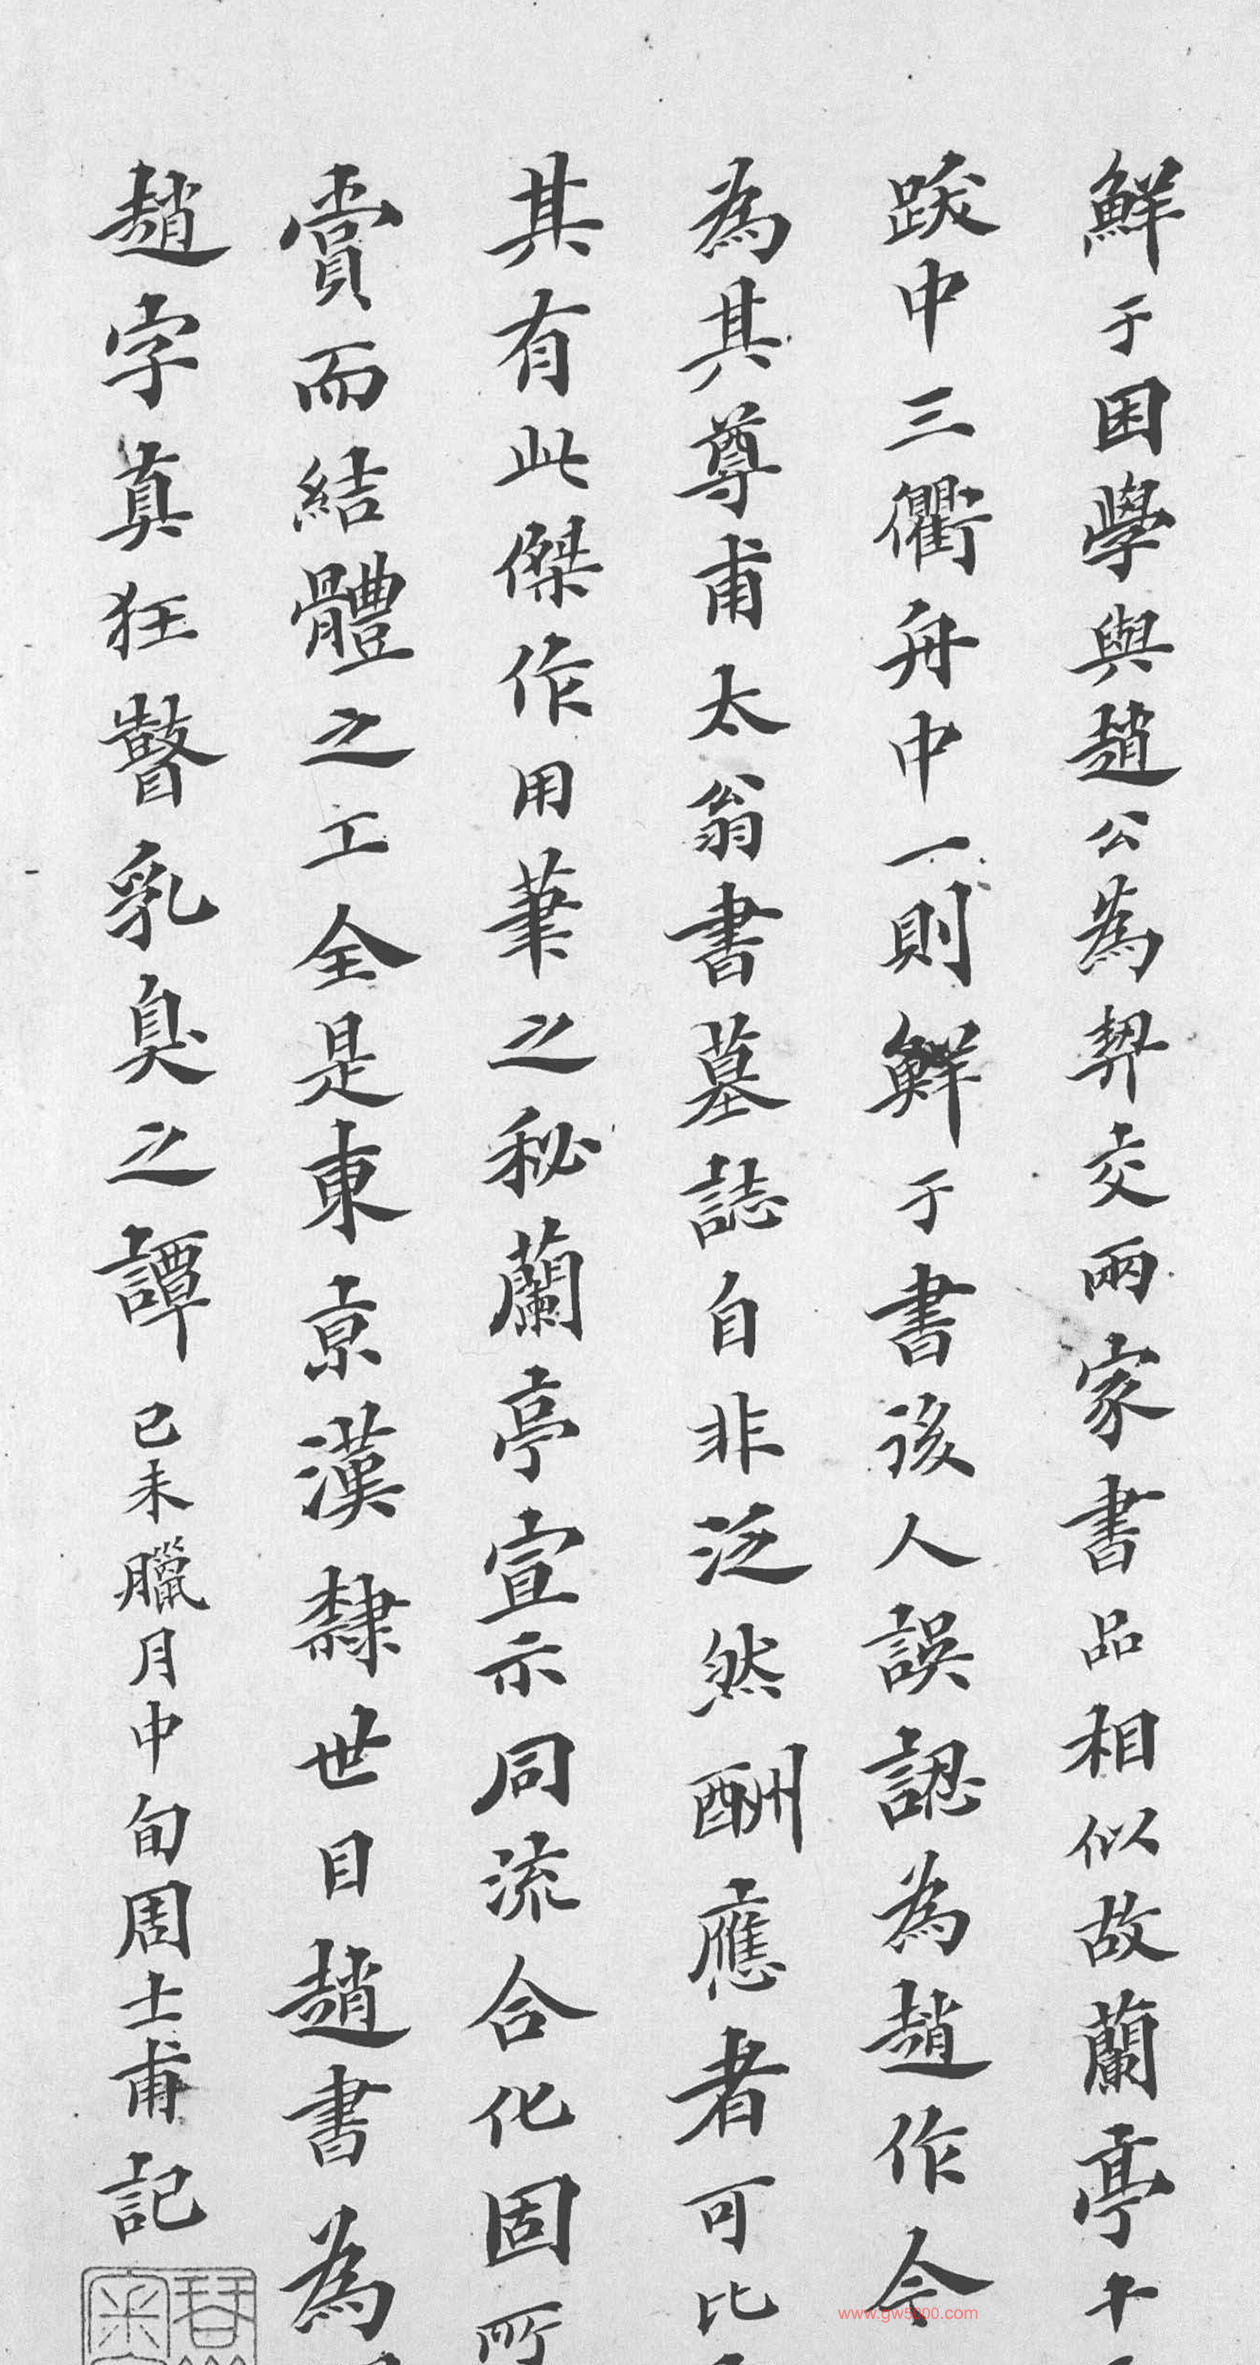 鮮于困學與趙公為契交兩家書品相似故蘭亭十
跋中三衢舟中一則鮮于書後人誤認為趙作今
為其尊甫太翁書墓誌自非泛然酬應者可比
其有此傑作用筆之秘蘭亭宣示同流合化固所
賞而結體之工全是東京漢隸世目趙書為
趙字真狂瞽乳臭之譚 己未臘月中旬周士甫記
www.gw5000.com